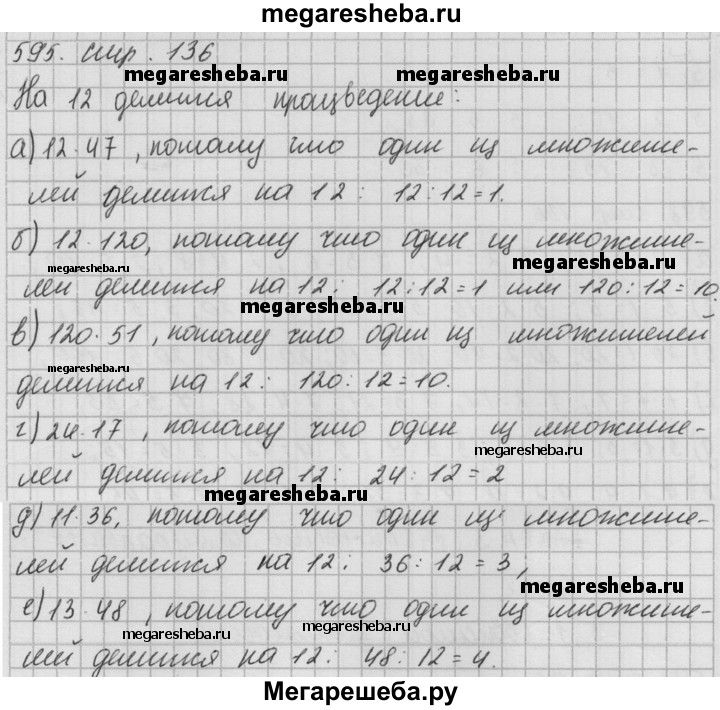 megaresheba.ru
595. стр. 136
megaresheba.ru megaresheba.ru
На 12 делится произведение:
а) 12·47, потому что один из множите-
лей делится на 12: 12:12=1.
б) 12·120, потому что один из множите-
megaresheba.ru megaresheba.ru
лей делится на 12: 12:12=1 или 120:12=10
megaresheba.ru
в) 120·51, потому что один из множителей
megaresheba.ru
делится на 12: 120:12=10.
г) 24·17, потому что один из множите-
megaresheba.ru
лей делится на 12: 24:12=2
megaresheba.ru
д) 11·36, потому что один из множите-
лей делится на 12: 36:12=3;
megaresheba.ru
е) 13·48, потому что один из множите-
megaresheba.ru megaresheba.ru
лей делится на 12: 48:12=4.
Мегарешеба.ру